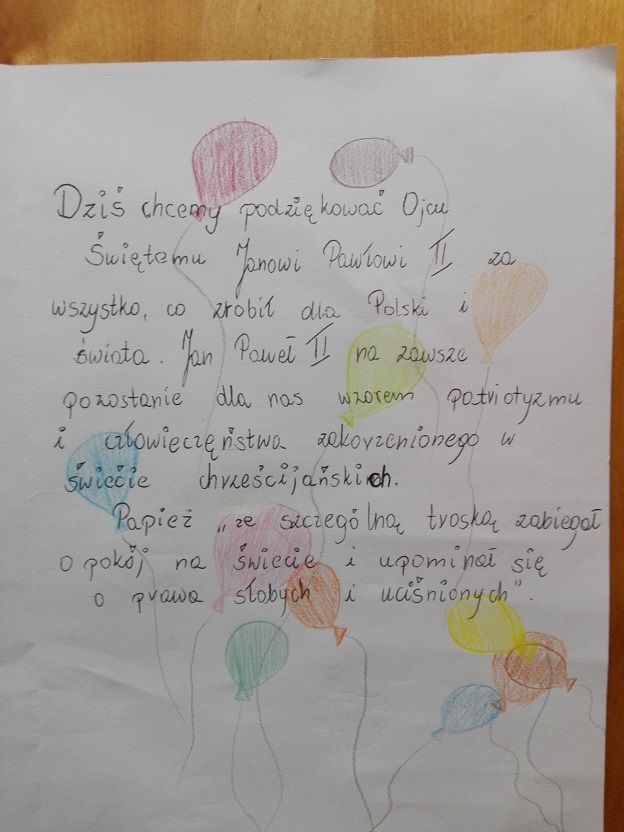 Dziś chcemy podziękować Ojcu
Świętemu Janowi Pawłowi II za
wszystko, co zrobił dla Polski i
świata. Jan Paweł II na zawsze
pozostanie dla nas wzorem patriotyzmu
i człowieczeństwa zakorzenionego w
świecie chrześcijańskich.
Papież „ze szczególną troską zabiegał
o pokój na świecie i upominał się
o prawa słabych i uciśnionych".